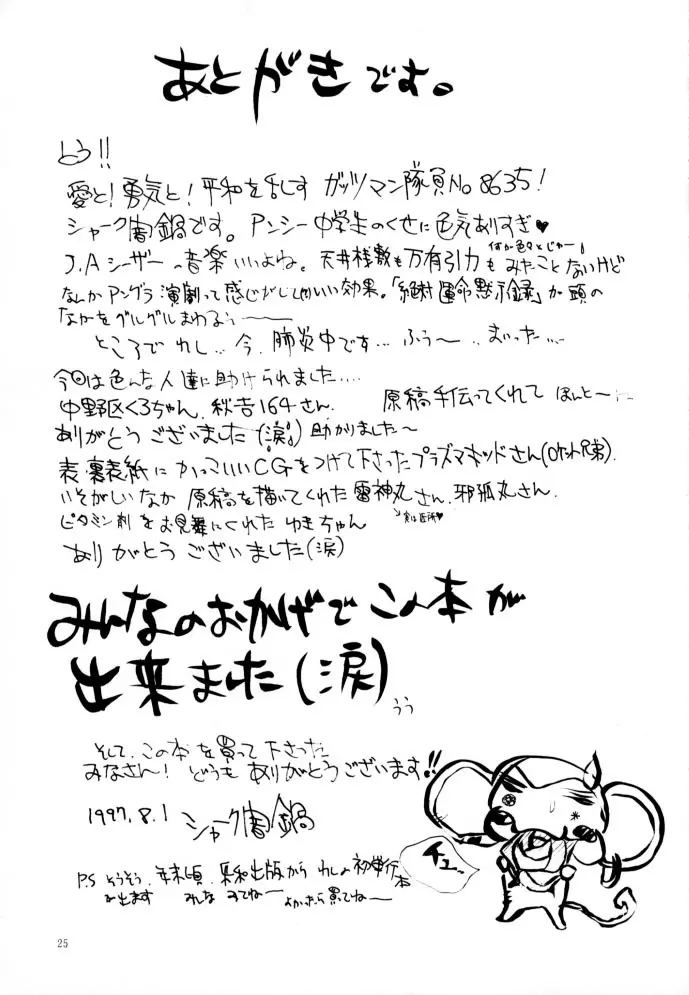 あとがきです。
とう!!
愛と!勇気と!平和を乱すガッツマン隊員No8635!
シャーク闇鍋です。アンシー中学生のくせに色気ありすぎ♥
J.Aシーザーの音楽いいよね。天井桟敷も万有引力もみたことないけど
なんかアングラ演劇って感じがしていい効果。「絶対運命黙示録」が頭の
なかをグルグルまわるぅ〜
ところでわし…今、肺炎中です…ふぅ〜…まいった…
今回は色んな人達に助けられました….
中野区くろちゃん、秋吉164さん、原稿手伝ってくれてほんと〜
ありがとうございました(涙)助かりました〜
表・裏表紙にかっこいいCGをつけて下さったプラズマキッドさん(ロケット兄弟)
いそがしいなか原稿を描いてくれた雷神丸さん、邪狐丸さん、
ビタミン剤をお見舞にくれたゆきちゃん
ありがとうございました(涙)
みんなのおかげでこの本が
出来ました(涙)
うぅ
そして、この本を買って下さった
みなさん!どうもありがとうございます!!
1997.8.1 シャーク闇鍋
チュー
P.S そうそう、年末頃、東和出版からわしの初単行本
を出ます みんな みてねー よかったら買てねー
25